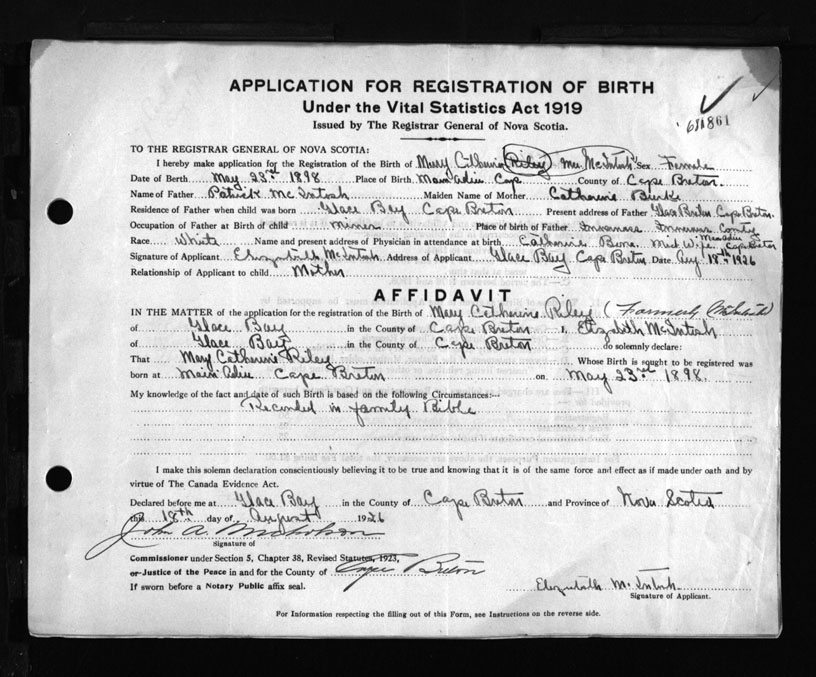 APPLICATION FOR REGISTRATION OF BIRTH
Under the Vital Statistics Act 1919
Issued by The Registrar General of Nova Scotia.
861
TO THE REGISTRAR GENERAL OF NOVA SCOTIA:
I hereby make application for the Registration of the Birth of Mary Catherine Riley nee McIntosh Sex Female
Date of Berth May 23rd 1898 Place of Birth Main adieu Cap County of Cape Breton
Name of Father Patrick McIntosh Maiden Name of Mother Catherine Burke
Residence of Father when child was born Glace Bay Cape Breton Present address of Father Glace Bay Cape Breton
Occupation of Father at Birth of child miner Place of birth of Father Inverness Inverness County
Race White Name and present address of Physician in attendance at birth Catherine Mid Wife Main adieu Cape Breton
Signature of Applicant Elizabeth McIntosh Address of Applicant Glace Bay Cape Breton Date Aug 18th 1926
Relationship of Applicant to child Mother
AFFIDAVIT
IN THE MATTER of the application for the registration of the Birth of Mary Catherine Riley (Formerly McIntosh)
of Glace Bay in the County of Cape Breton I, Elizabeth McIntosh
of Glace Bay in the County of Cape Breton do solemnly declare:
That Mary Catherine Riley Whose Birth is sought to be registered was
born at Main Adieu Cape Breton on May 23rd 1898.
My knowledge of the fact and date of such Birth is based on the following Circumstances:—
Recorded in family Bible
I make this solemn declaration conscientiously believing it to be true and knowing that it is of the same force and effect as if made under oath and by
virtue of The Canada Evidence Act.
Declared before me at Glace Bay in the County of Cape Breton and Province of Nova Scotia
this 18th day of August 1926
John A. Nicholson
Signature of
Commissioner under Section 5, Chapter 38, Revised Statutes, 1923,
or Justice of the Peace in and for the County of Cape Breton
If sworn before a Notary Public affix seal.
Elizabeth McIntosh
Signature of Applicant.
For Information respecting the filling out of this Form, see Instructions on the reverse side.